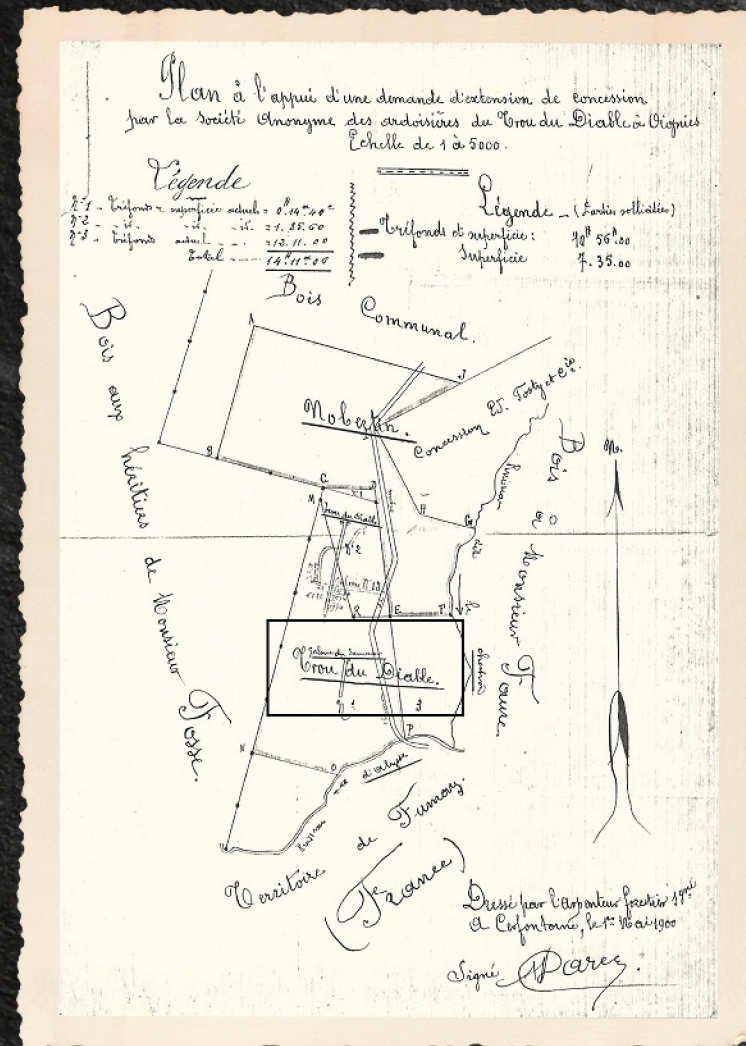 Plan à l'appui d'une demande d'extension de concession
par la Société Anonyme des ardoisières du Trou du Diable à Oignies
Echelle de 1 à 5000.
Légende
N°1 - Tréfonds = superficie actuels = 0H.14a.40c
N°2 - id. - id. = 1.85.60
N°3 - Tréfonds actuel - = 12.11.00
Total 14H11a00
Légende - (Parties sollicitées)
Tréfonds et superficie : 10H 56a.00
Superficie 7.35.00
Bois Communal.
Bois aux héritiers de Monsieur Fosse.
A
J
Nobertin.
Concession
B
C
M
Trou du Diable
H
G
Ruisseau
dit
Bois à Monsieur Faure.
N.
N°2
R
E
F
Trou du Diable.
N°1
3
P
N
O
Ruisseau
Territoire de Fumay.
(France)
Dressé par l'Arpenteur forestier
A Cerfontaine, le 1er Mai 1900
Signé